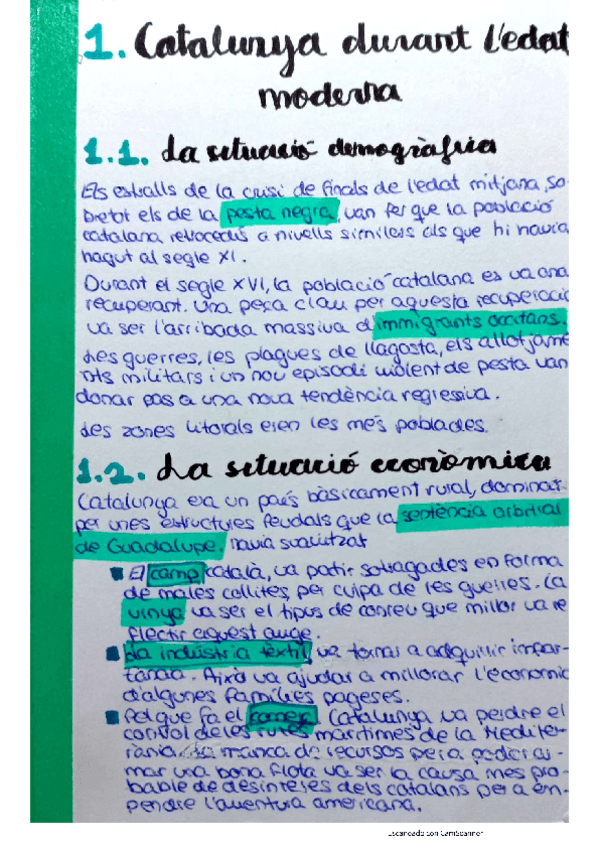 1. Catalunya durant l'edat
moderna
1.1. La situació demogràfica
Els estralls de la crisi de finals de l'edat mitjana, so-
bretot els de la pesta negra, van fer que la població
catalana retrocedís a nivells similars als que hi havia
hagut al segle XI.
Durant el segle XVI, la població catalana es va ana
recuperant. Una peça clau per aquesta recuperació
va ser l'arribada massiva d'immigrants occitans.
Les guerres, les plagues de llagosta, els allotjame
nts militars i un nou episodi violent de pesta van
donar pas a una nova tendència regressiva.
Les zones litorals eren les més poblades.
1.2. La situació econòmica
Catalunya era un país bàsicament rural, dominat
per unes estructures feudals que la sentència arbitral
de Guadalupe, havia suavitzat
El camp català, va patir sotragades en forma
de males collites, per culpa de les guerres. La
vinya va ser el tipus de conreu que millor va re
flectir aquest auge.
La indústria tèxtil, va tornar a adquirir impor-
tància. Això va ajudar a millorar l'economia
d'algunes famílies pageses.
Pel que fa el comerç, Catalunya va perdre el
control de les rutes marítimes de la Mediter-
rània. La manca de recursos per a poder ar-
mar una bona flota va ser la causa més pro-
bable de desinterès dels catalans per a em-
pendre l'aventura americana.
Escaneado con CamScanner